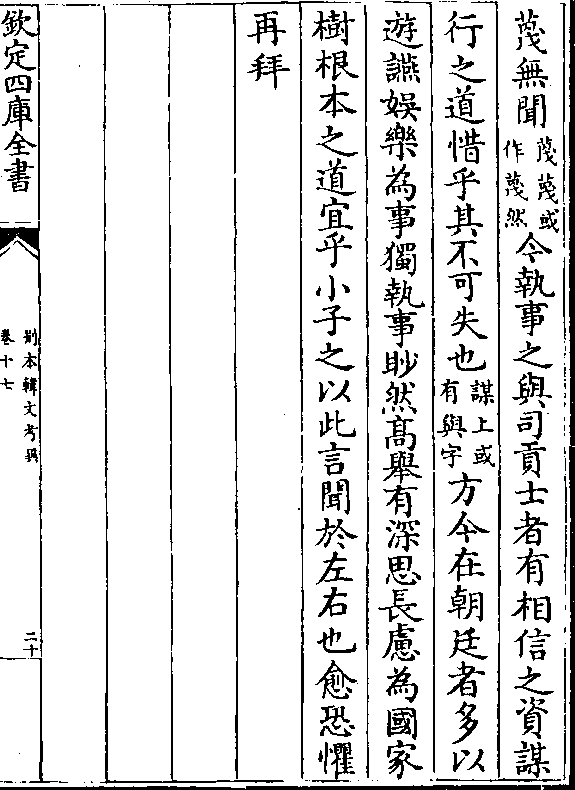 蔑無聞蔑蔑或作蔑然今執事之與司貢士者有相信之資謀
行之道惜乎其不可失也謀上或有與字方今在朝廷者多以
遊讌娛樂為事獨執事眇然髙舉有深思長慮為國家
樹根本之道宜乎小子之以此言聞於左右也愈恐懼
再拜
欽定四庫全書
別本韓文考異
卷十七
二十